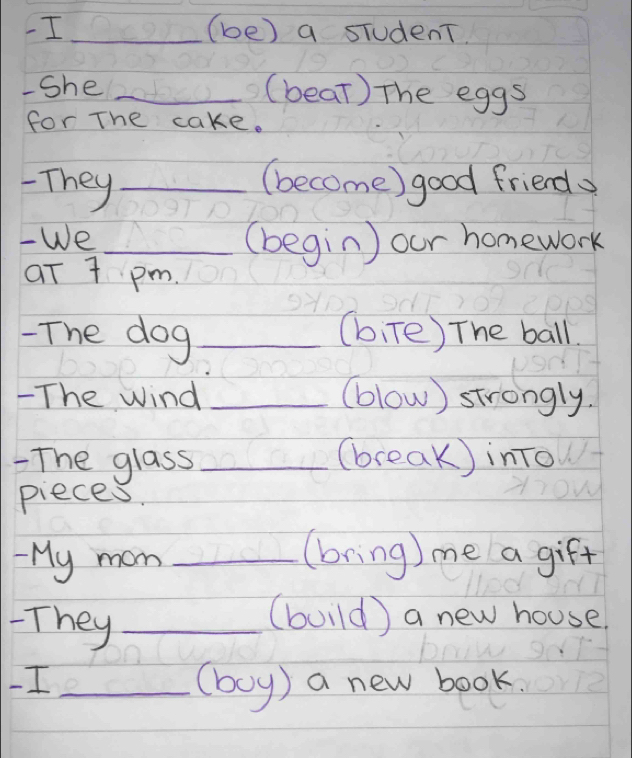 -I ______ (be) a student.
-She ______ (beat) The eggs
for The cake.
-They ______ (become) good friends
-We ______ (begin) our homework
at 7 pm.
-The dog ______ (bite) The ball.
-The wind ______ (blow) strongly.
-The glass ______ (break) into
pieces.
-My mom ______ (bring) me a gift
-They ______ (build) a new house.
-I ______ (buy) a new book.